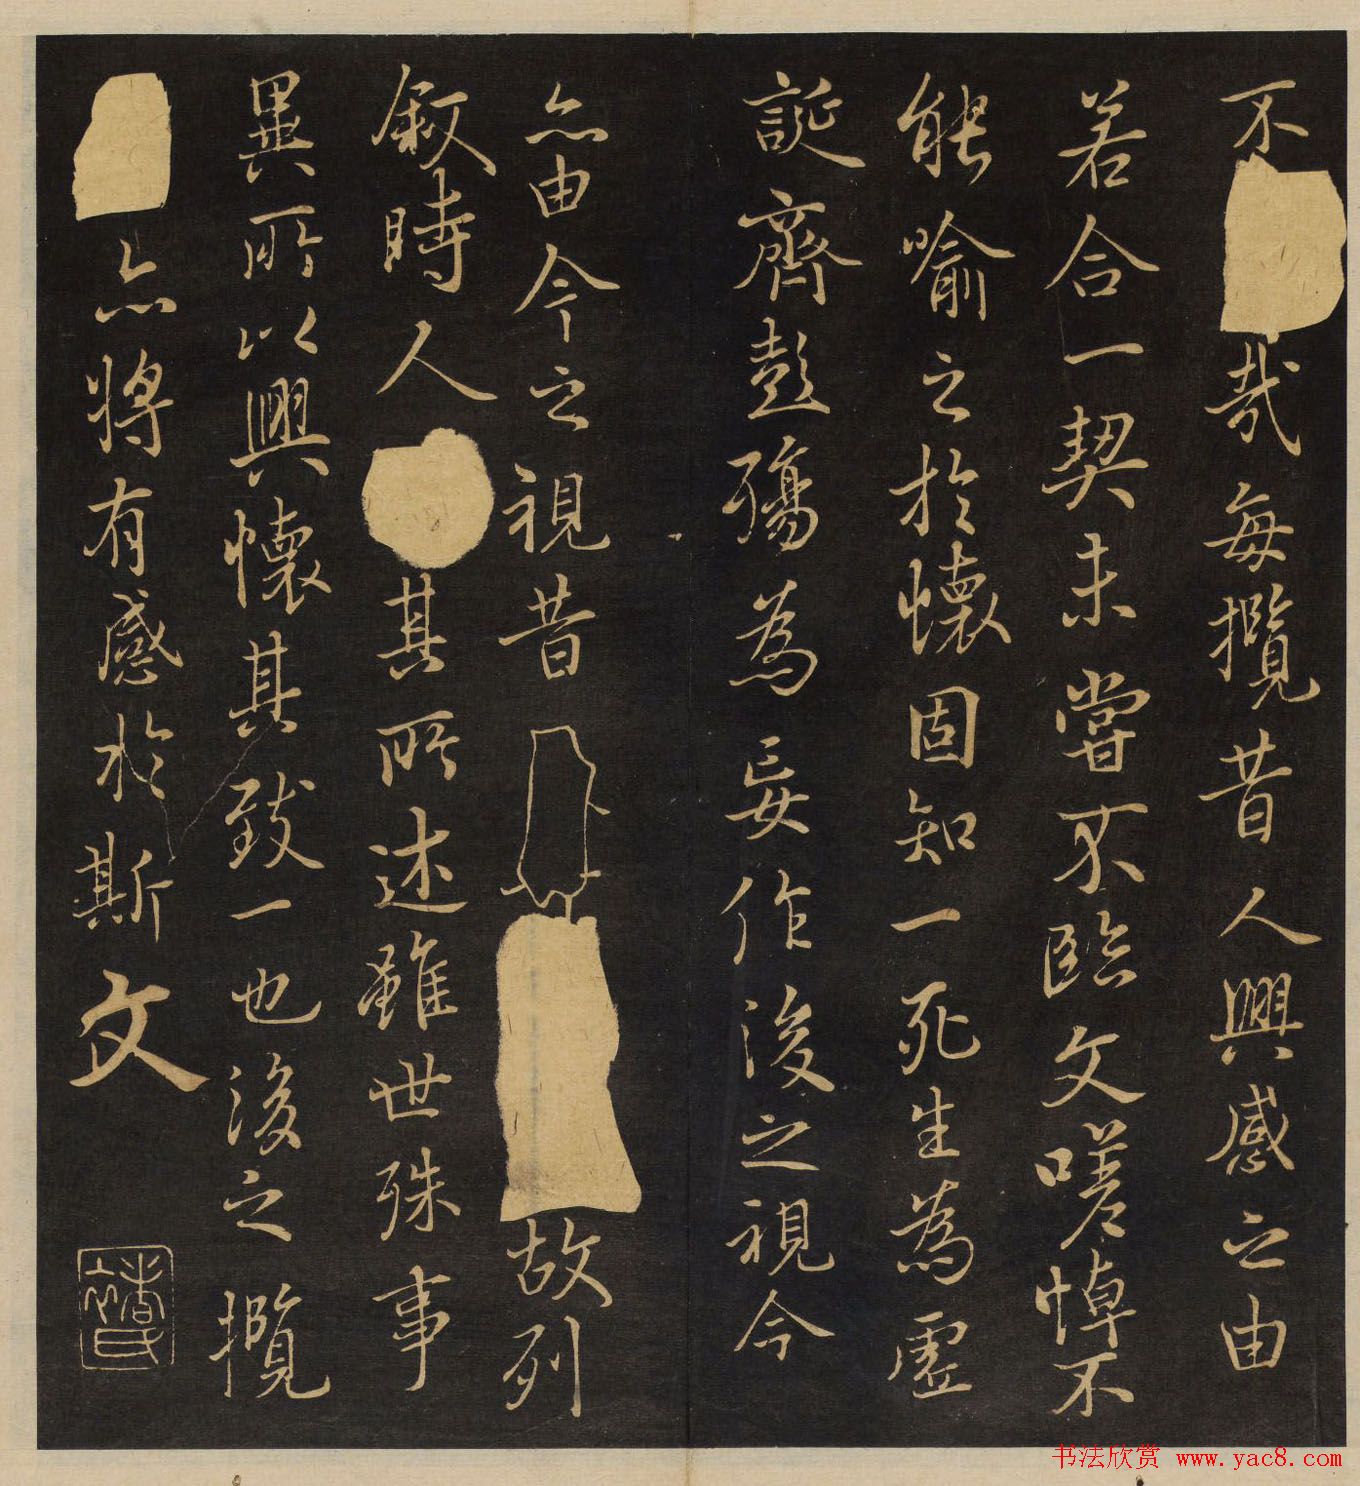 不哉每攬昔人興感之由
若合一契未嘗不臨文嗟悼不
能喻之於懷固知一死生為虛
誕齊彭殤為妄作後之視今
亦由今之視昔故列
敘時人其所述雖世殊事
異所以興懷其致一也後之攬
亦將有感於斯文
书法欣赏 www.yac8.com